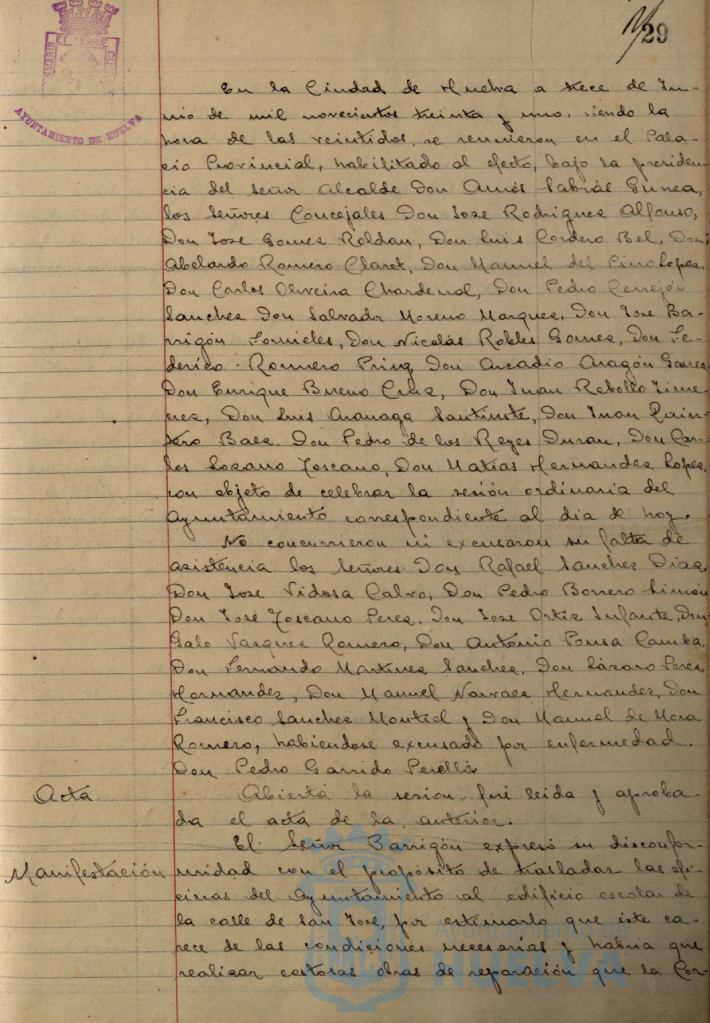 29
AYUNTAMIENTO DE HUELVA
En la Ciudad de Huelva a trece de Ju-
nio de mil novecientos treinta y uno, siendo la
hora de las veintidos, se reunieron en el Pala-
cio Provincial, habilitado al efecto, bajo la presiden-
cia del señor Alcalde Don Amós Sabrás Gurrea,
los señores Concejales Don Jose Rodriguez Alfonso,
Don Jose Gomez Roldan, Don Luis Cordero Bel, Don
Abelardo Romero Claret, Don Manuel del Pino Lopez,
Don Carlos Oliveira Chardenal, Don Pedro Cerrejón
Sanchez Don Salvador Moreno Marquez, Don Jose Ba-
rrigón Fornieles, Don Nicolás Robles Gomez, Don Fe-
derico Romero Don Arcadio Aragón Gomez
Don Enrique Bueno Cruz, Don Juan Rebollo Jime-
nez, Don Luis Don Juan Quin-
tero Baez. Don Pedro de los Reyes Duran, Don Car-
los Lozano Toscano, Don Matias Hernandez Lopez,
con objeto de celebrar la sesión ordinaria del
Ayuntamiento correspondiente al dia de hoy.
No concurrieron ni excusaron su falta de
asistencia los señores Don Rafael Sanchez Diaz,
Don Jose Vidosa Calvo, Don Pedro Borrero Limon
Don José Toscano Perez, Don Jose Ortiz Infante, Don
Galo Vazquez Romero, Don António Pousa Camba,
Don Fernando Martinez Sanchez, Don Lázaro Perez
Hernandez, Don Manuel Narvaez Hernandez, Don
Francisco Sanchez Montiel y Don Manuel de Mora
Romero, habiendose excusado por enfermedad
Don Pedro Garrido Perelló
Acta. Abierta la sesion, fué leida y aproba-
da el acta de la anterior.
El Señor Barrigón expresó su disconfor-
Manifestación midad con el propósito de trasladar las ofi-
cinas del Ayuntamiento al edificio escolar de
la calle de San José, por estimarlo que éste ca-
rece de las condiciones necesarias y habria que
realizar costosas obras de reparación que la Cor-
AYUNTAMIENTO DE
HUELVA